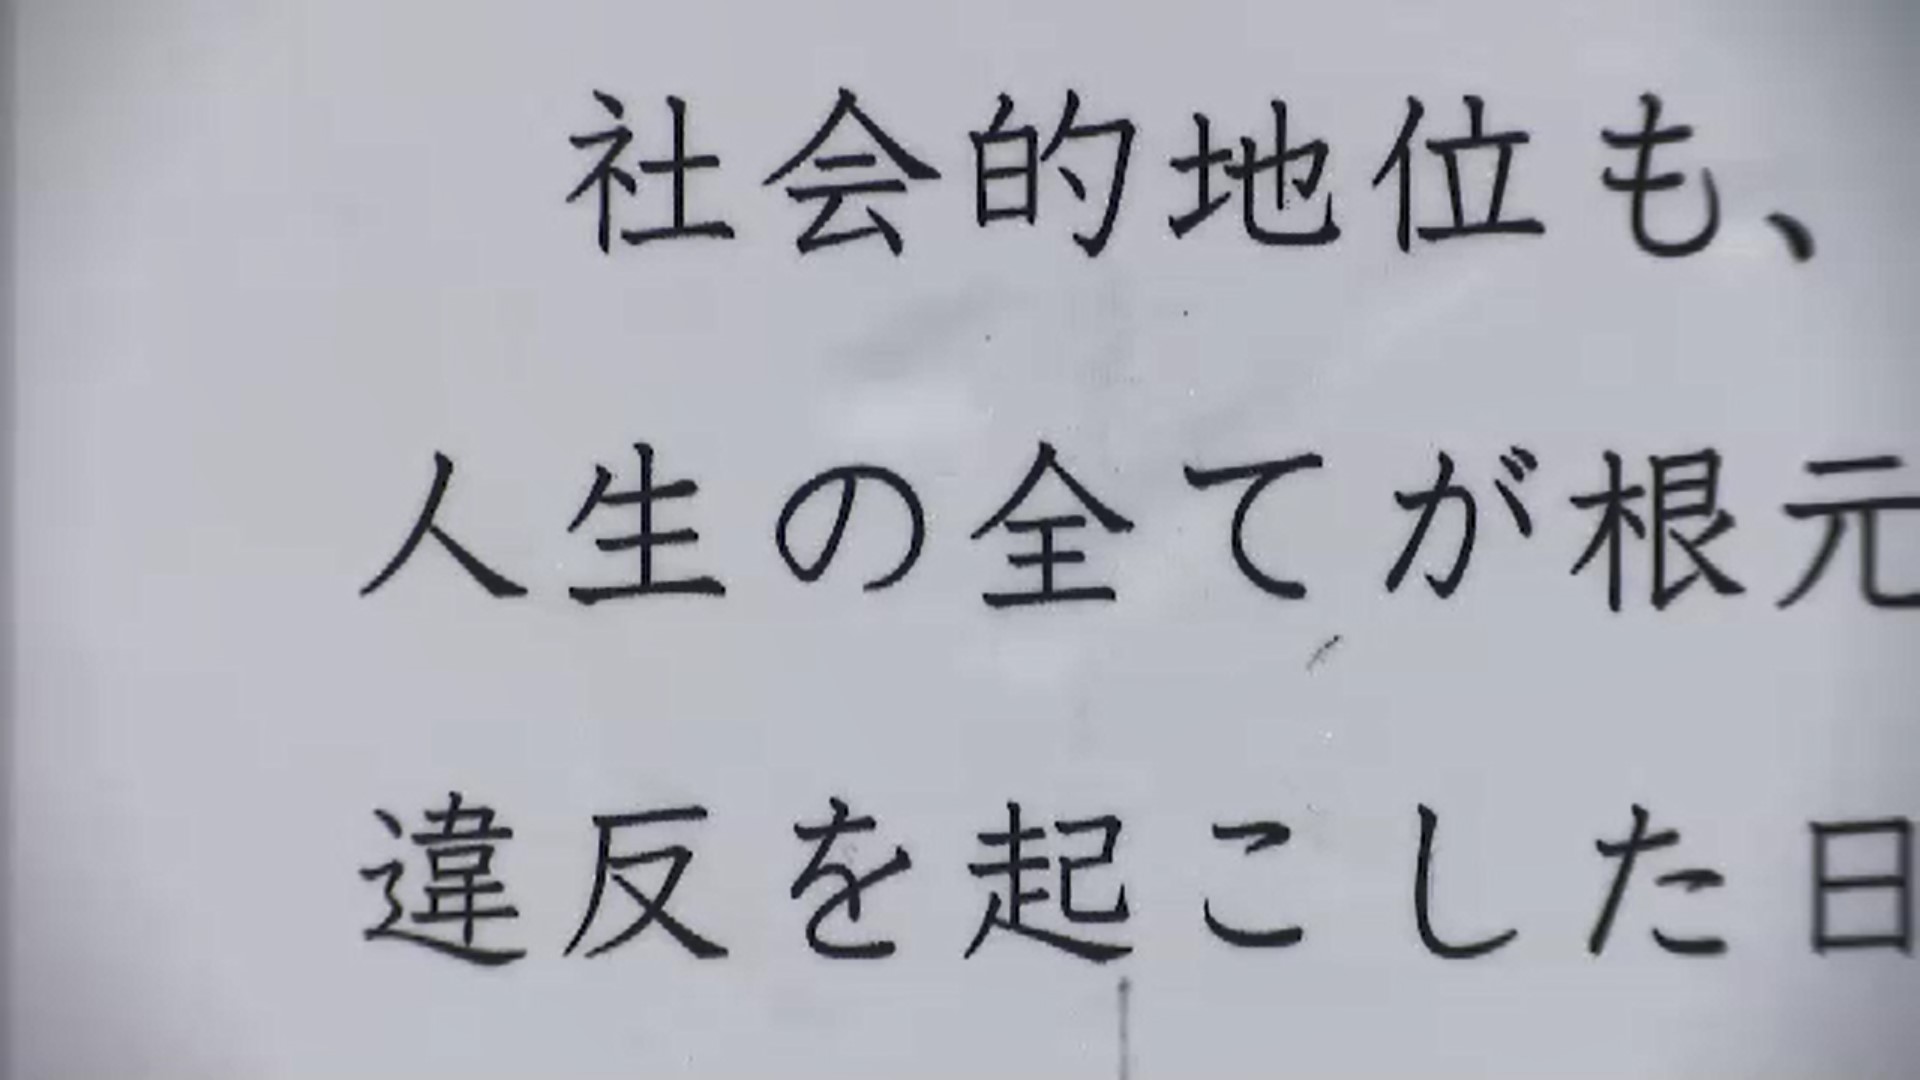 社会的地位も、
人生の全てが根元
違反を起こした日